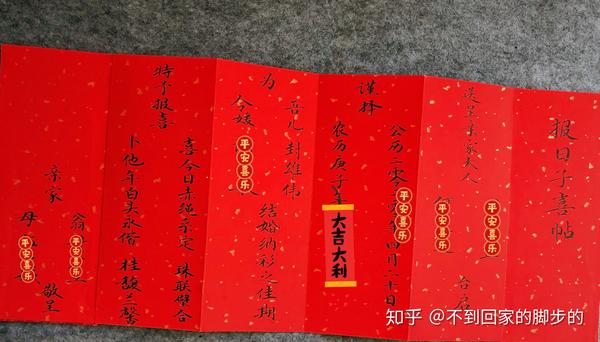 报日子喜帖
送呈亲家夫人
平安喜乐
平安喜乐
台启
谨择
公历二零二零年四月二十日
农历庚子年
大吉大利
为
吾儿封维伟
令媛
平安喜乐
结婚纳彩之佳期
特予报喜
喜今日赤绳系定 珠联璧合
卜他年白头永偕 桂馥兰馨
亲家
翁
平安喜乐
母
平安喜乐
敬呈
知乎 @不到回家的脚步的